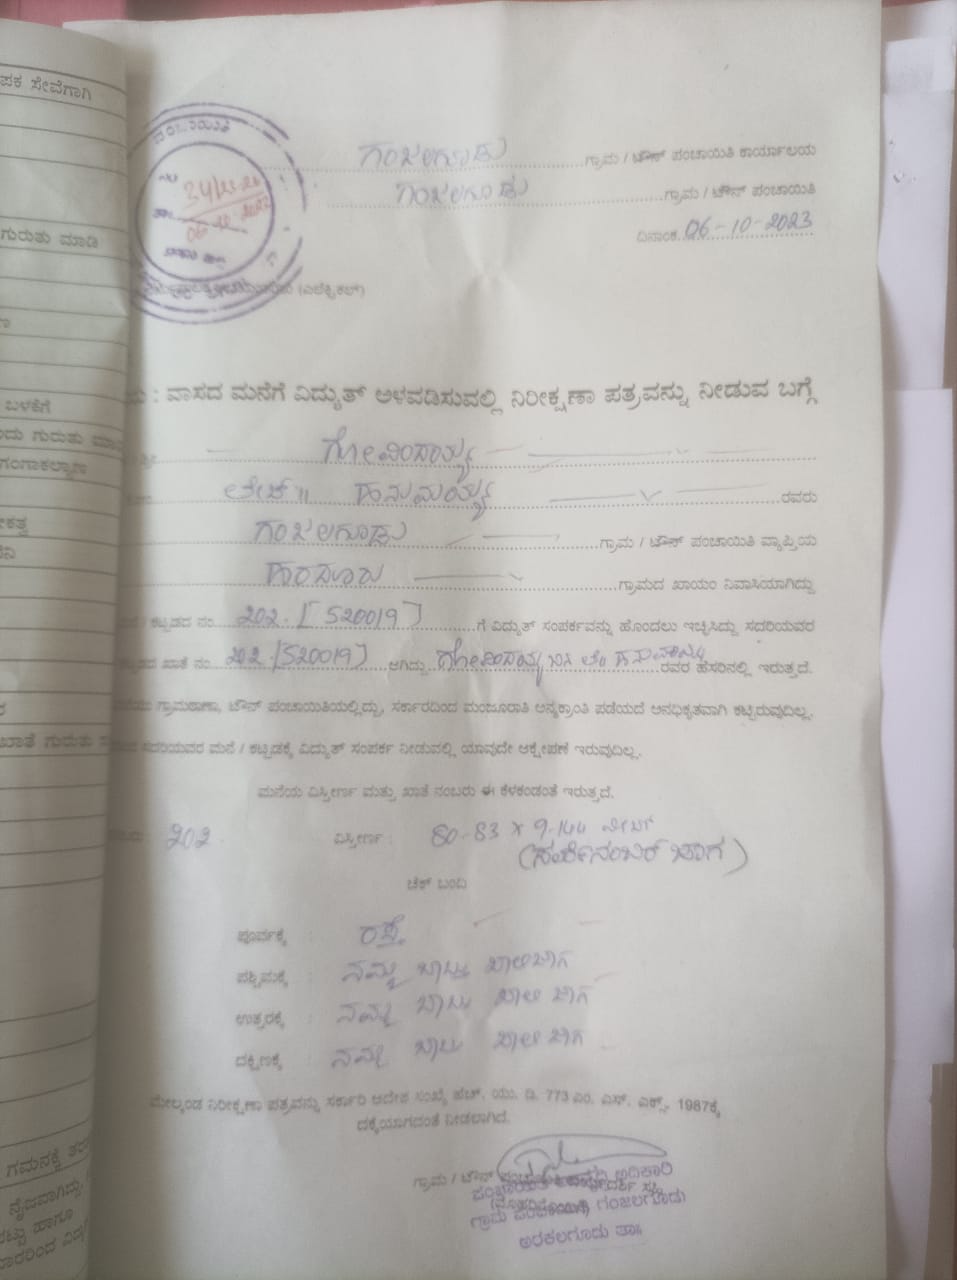 ಪಕ ಸೇವೆಗಾಗಿ
ಗುರುತು ಮಾಡಿ
ಬಳಕೆಗೆ
ಗಂಗಾಕಲ್ಯಾಣ
ಖಾತೆ ಗುರುತು
ಗಮನಕ್ಕೆ
34/
06-10-2023
ಗಂಜಲಗೂಡು ಗ್ರಾಮ / ಟೌನ್ ಪಂಚಾಯಿತಿ ಕಾರ್ಯಾಲಯ
ಗಂಜಲಗೂಡು ಗ್ರಾಮ / ಟೌನ್ ಪಂಚಾಯಿತಿ
ದಿನಾಂಕ 06-10-2023
(ಎಲೆಕ್ಟ್ರಿಕಲ್)
: ವಾಸದ ಮನೆಗೆ ವಿದ್ಯುತ್ ಅಳವಡಿಸುವಲ್ಲಿ ನಿರೀಕ್ಷಣಾ ಪತ್ರವನ್ನು ನೀಡುವ ಬಗ್ಗೆ
ಗೋವಿಂದಯ್ಯ
ಲೇಟ್ ॥ ಹನುಮಯ್ಯ ರವರು
ಗಂಜಲಗೂಡು ಗ್ರಾಮ / ಟೌನ್ ಪಂಚಾಯಿತಿ ವ್ಯಾಪ್ತಿಯ
ಹರದೂರು ಗ್ರಾಮದ ಖಾಯಂ ನಿವಾಸಿಯಾಗಿದ್ದು
/ ಕಟ್ಟಡದ ನಂ. 202. [520019] ಗೆ ವಿದ್ಯುತ್ ಸಂಪರ್ಕವನ್ನು ಹೊಂದಲು ಇಚ್ಛಿಸಿದ್ದು ಸದರಿಯವರ
ಖಾತೆ ನಂ. 202 [520019] ಆಗಿದ್ದು ಗೋವಿಂದಯ್ಯ ಬಿನ್ ಲೇ ಹನುಮಯ್ಯ ರವರ ಹೆಸರಿನಲ್ಲಿ ಇರುತ್ತದೆ.
ಗ್ರಾಮಠಾಣಾ, ಟೌನ್ ಪಂಚಾಯಿತಿಯಲ್ಲಿದ್ದು, ಸರ್ಕಾರದಿಂದ ಮಂಜೂರಾತಿ ಅನ್ಯಕ್ರಾಂತಿ ಪಡೆಯದೆ ಅನಧಿಕೃತವಾಗಿ ಕಟ್ಟಿರುವುದಿಲ್ಲ.
ಸದರಿಯವರ ಮನೆ / ಕಟ್ಟಡಕ್ಕೆ ವಿದ್ಯುತ್ ಸಂಪರ್ಕ ನೀಡುವಲ್ಲಿ ಯಾವುದೇ ಆಕ್ಷೇಪಣೆ ಇರುವುದಿಲ್ಲ.
ಮನೆಯ ವಿಸ್ತೀರ್ಣ ಮತ್ತು ಖಾತೆ ನಂಬರು ಈ ಕೆಳಕಂಡಂತೆ ಇರುತ್ತದೆ.
202 ವಿಸ್ತೀರ್ಣ : 80-83 x 9.144 ಮೀಟರ್
(ಸರ್ವೆನಂಬರ್ ಜಾಗ)
ಚೆಕ್ ಬಂದಿ
ಪೂರ್ವಕ್ಕೆ : ರಸ್ತೆ
ಪಶ್ಚಿಮಕ್ಕೆ : ನಮ್ಮ ಬಾಬ್ತು ಖಾಲಿಜಾಗ
ಉತ್ತರಕ್ಕೆ : ನಮ್ಮ ಬಾಬ್ತು ಖಾಲಿ ಜಾಗ
ದಕ್ಷಿಣಕ್ಕೆ : ನಮ್ಮ ಬಾಬ್ತು ಖಾಲಿ ಜಾಗ
ಮೇಲ್ಕಂಡ ನಿರೀಕ್ಷಣಾ ಪತ್ರವನ್ನು ಸರ್ಕಾರಿ ಆದೇಶ ಸಂಖ್ಯೆ ಹೆಚ್. ಯು. ಡಿ. 773 ಎಂ. ಎಸ್. ಎಕ್ಸ್. 1987ಕ್ಕೆ
ದಕ್ಕೆಯಾಗದಂತೆ ನೀಡಲಾಗಿದೆ.
ಗ್ರಾಮ / ಟೌನ್
ಗ್ರಾಮ ಪಂಚಾಯಿತಿ ಗಂಜಲಗೂಡು
ಅರಕಲಗೂಡು ತಾ॥